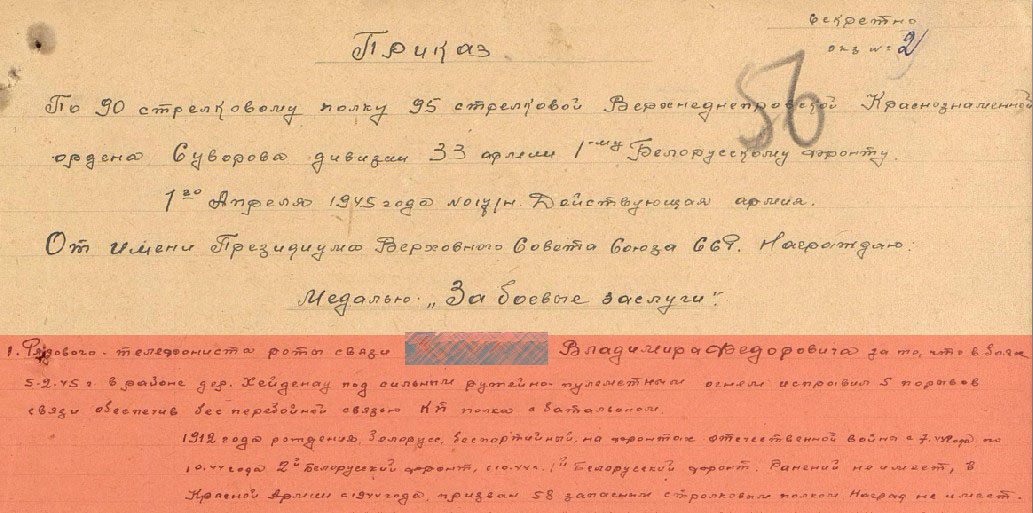 Секретно
экз № 2
56
Приказ
По 90 стрелковому полку 95 стрелковой Верхнеднепровской Краснознаменной
ордена Суворова дивизии 33 армии 1му Белорусскому фронту.
1го Апреля 1945 года № 017/н. Действующая армия.
От имени Президиума Верховного Совета Союза ССР. Награждаю:
Медалью „За боевые заслуги“.
1. Рядового-телефониста роты связи Владимира Федоровича за то, что в боях
5.2.45 г. в районе дер. Хейденау под сильным ружейно-пулеметным огнем исправил 5 порывов
связи обеспечив бесперебойной связью КП полка с батальоном.
года рождения, Белорусс, беспартийный, на фронтах отечественной войны с по
года 2й Белорусский фронт, 1й Белорусский фронт. Ранений не имеет, в
Красной Армии с 1944 года, призван 58 запасным стрелковым полком Наград не имеет.